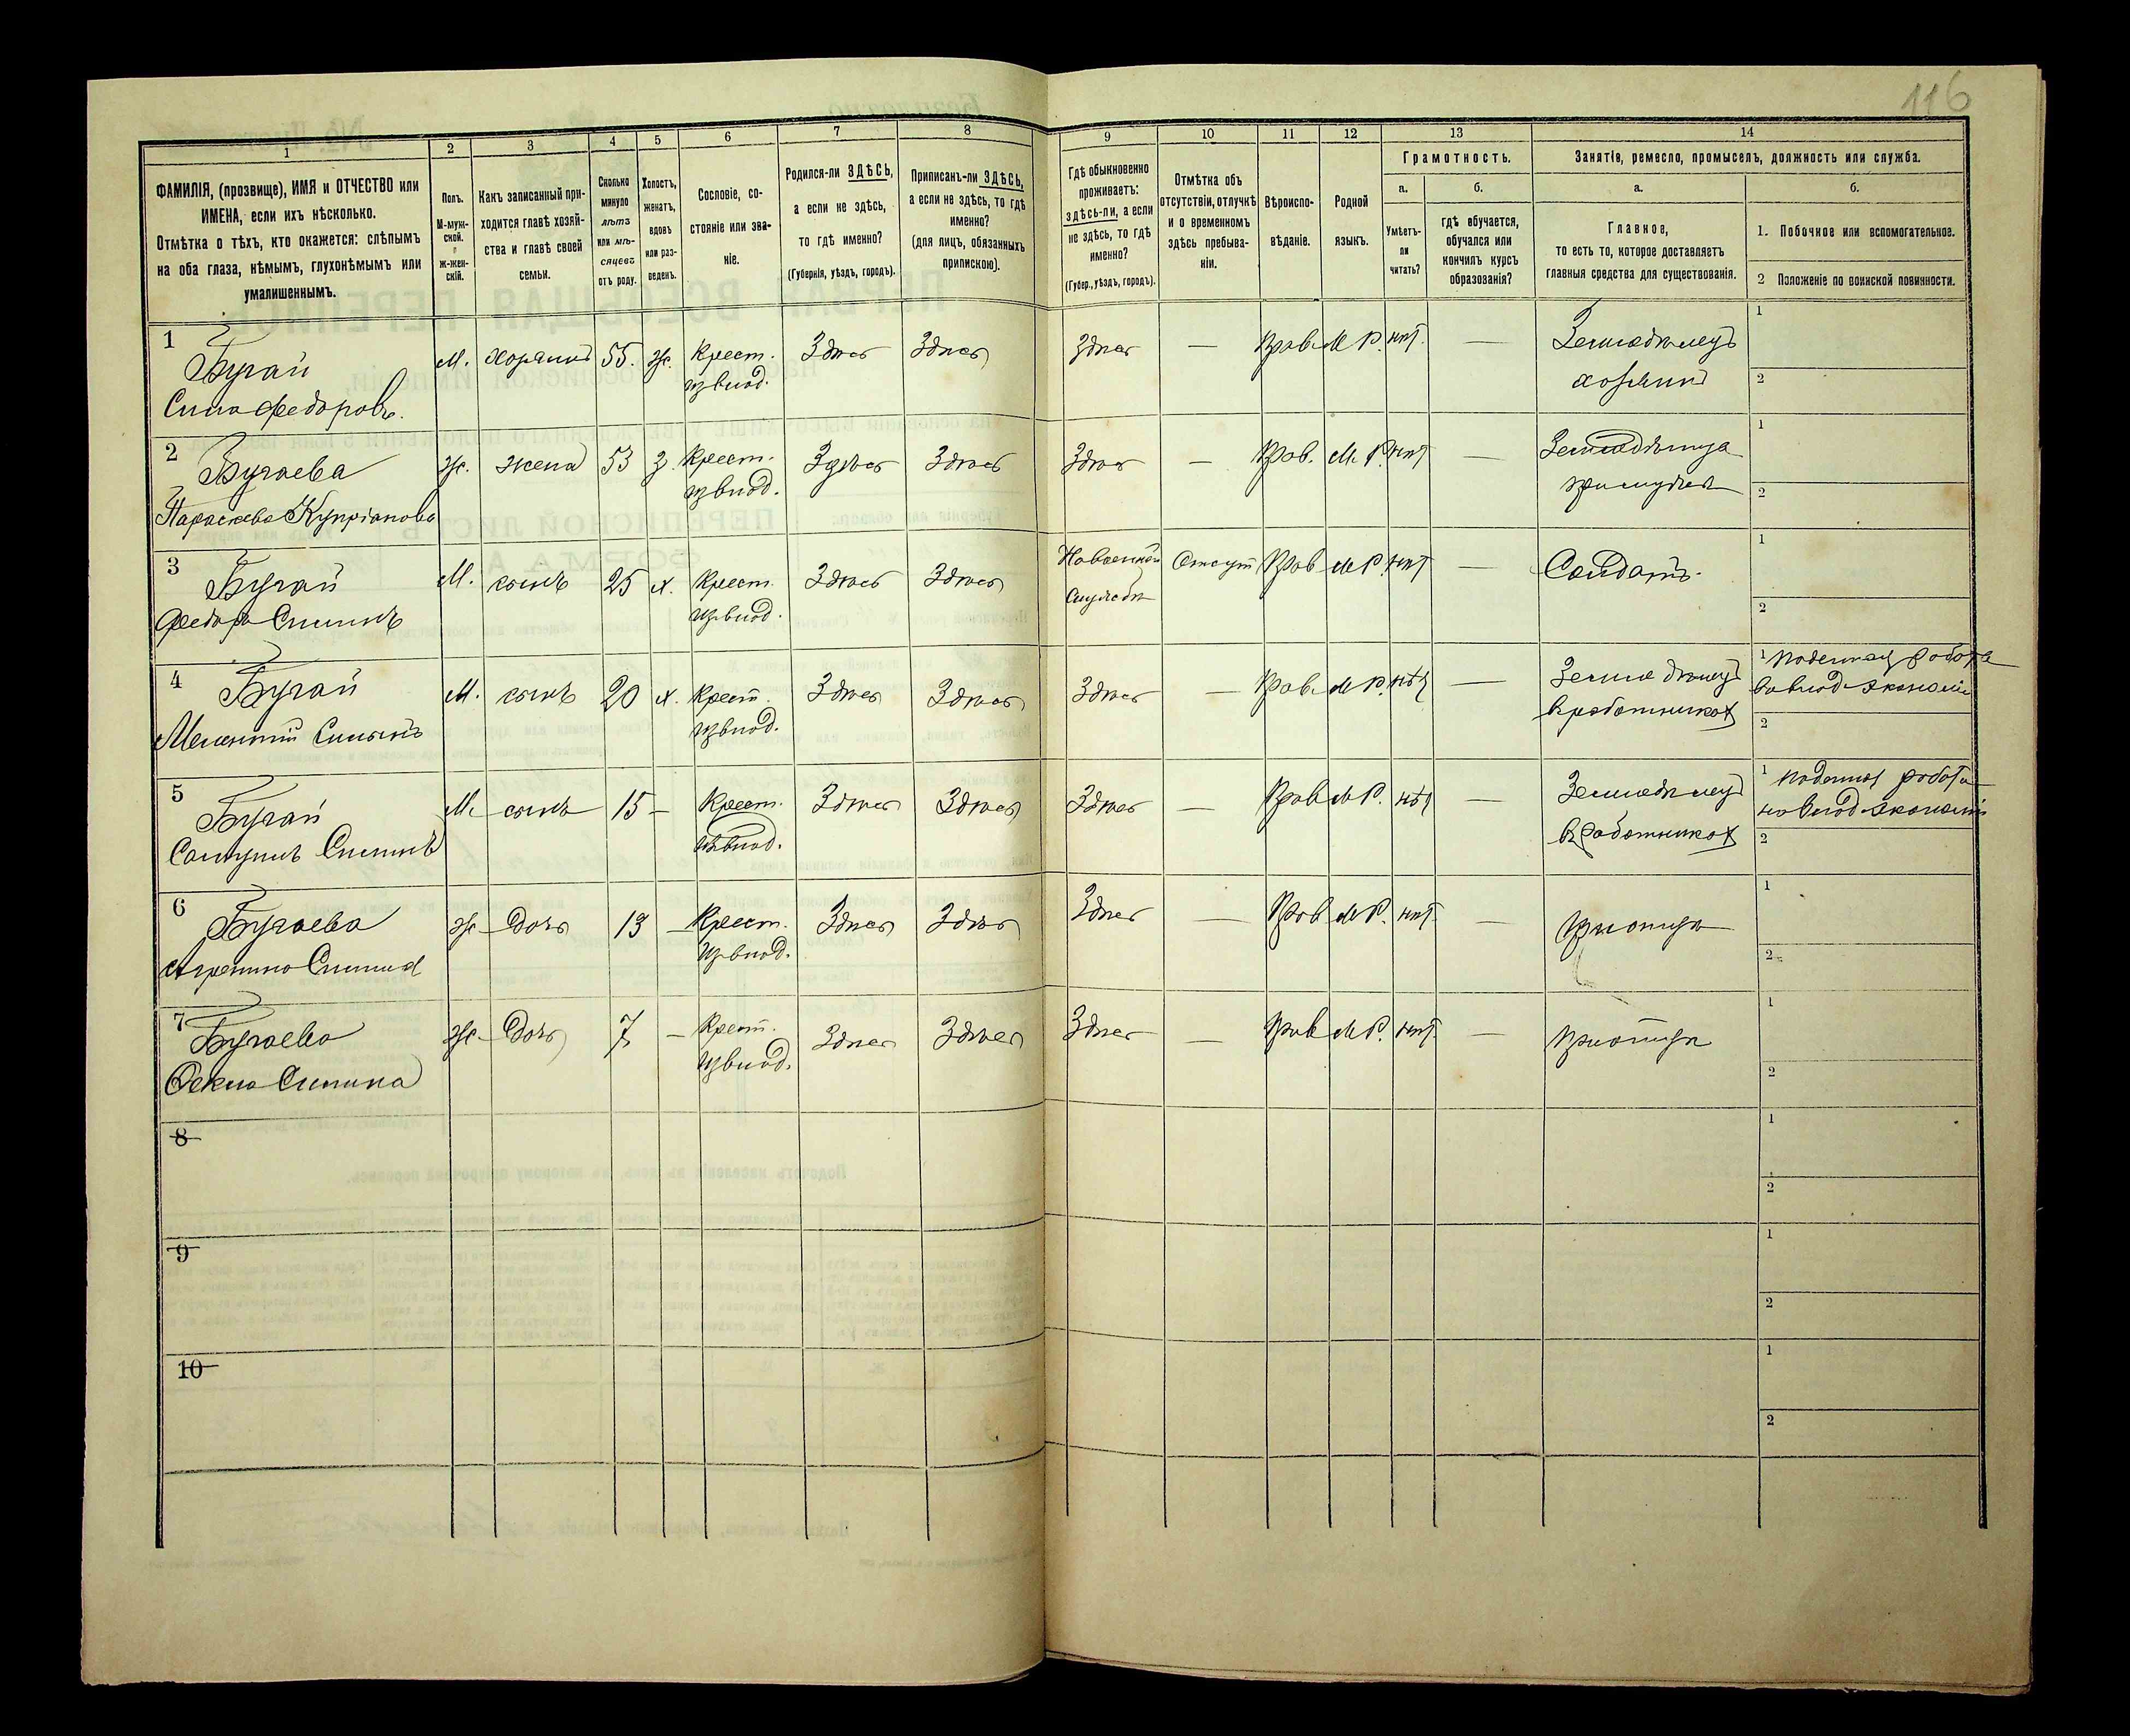 116
1
2
3
4
5
6
7
8
9
10
11
12
13
14
ФАМИЛІЯ, (прозвище), ИМЯ и ОТЧЕСТВО или
ИМЕНА, если ихъ нѣсколько.
Отмѣтка о тѣхъ, кто окажется: слѣпымъ
на оба глаза, нѣмымъ, глухонѣмымъ или
умалишеннымъ.
Полъ.
М-муж-
ской.
ж-жен-
скій.
Какъ записанный при-
ходится главѣ хозяй-
ства и главѣ своей
семьи.
Сколько
минуло
лѣтъ
или мѣ-
сяцевъ
отъ роду.
Холостъ,
женатъ,
вдовъ
или раз-
веденъ.
Сословіе, со-
стояніе или зва-
ніе.
Родился-ли ЗДѢСЬ,
а если не здѣсь,
то гдѣ именно?
(Губернія, уѣздъ, городъ).
Приписанъ-ли ЗДѢСЬ,
а если не здѣсь, то гдѣ
именно?
(для лицъ, обязанныхъ
припискою).
Гдѣ обыкновенно
проживаетъ:
здѣсь-ли, а если
не здѣсь, то гдѣ
именно?
(Губер., уѣздъ, городъ).
Отмѣтка объ
отсутствіи, отлучкѣ
и о временномъ
здѣсь пребыва-
ніи.
Вѣроиспо-
вѣданіе.
Родной
языкъ.
Грамотность.
а.
Умѣетъ-
ли
читать?
б.
гдѣ обучается,
обучался или
кончилъ курсъ
образованія?
Занятіе, ремесло, промыселъ, должность или служба.
а.
Главное,
то есть то, которое доставляетъ
главныя средства для существованія.
б.
1. Побочное или вспомогательное.
2 Положеніе по воинской повинности.
1
Бугай
Сила Федоровъ.
м. хозяинъ 55. ж. Крест.
изъ влад.
Здѣсь Здѣсь Здѣсь — Прав. М. Р. нѣт. —
Земледѣлецъ
хозяинъ
1
2
2
Бугаева
Параскева Купріанова
ж. жена 53 з. Крест.
изъ влад.
Здѣсь Здѣсь Здѣсь — Прав. М. Р. нѣт —
1
2
3
Бугай
Федоръ Силинъ
М. сынъ 25 х. Крест.
изъ влад.
Здѣсь Здѣсь На военной
службѣ
Отсут Прав М Р. нѣт —
Солдатъ.
1
2
4
Бугай
Мелентій Силинъ
М. сынъ 20 х. Крест.
изъ влад.
Здѣсь Здѣсь Здѣсь — Прав. М Р. нѣт —
Земледѣлецъ
въ работникахъ
1
2
5
Бугай
Самуилъ Силинъ
М. сынъ 15 — Крест.
изъ влад.
Здѣсь Здѣсь Здѣсь — Прав М Р. нѣт —
Земледѣлецъ
въ работникахъ
1
2
6
Бугаева
Силина
ж. дочь 13 — Крест.
изъ влад.
Здѣсь Здѣсь Здѣсь — Прав М Р. нѣт. —
1
2
7
Бугаева
Силина
ж. дочь 7 — Крест.
изъ влад.
Здѣсь Здѣсь Здѣсь — Прав М Р. нѣт. —
1
2
8
1
2
9
1
2
10
1
2